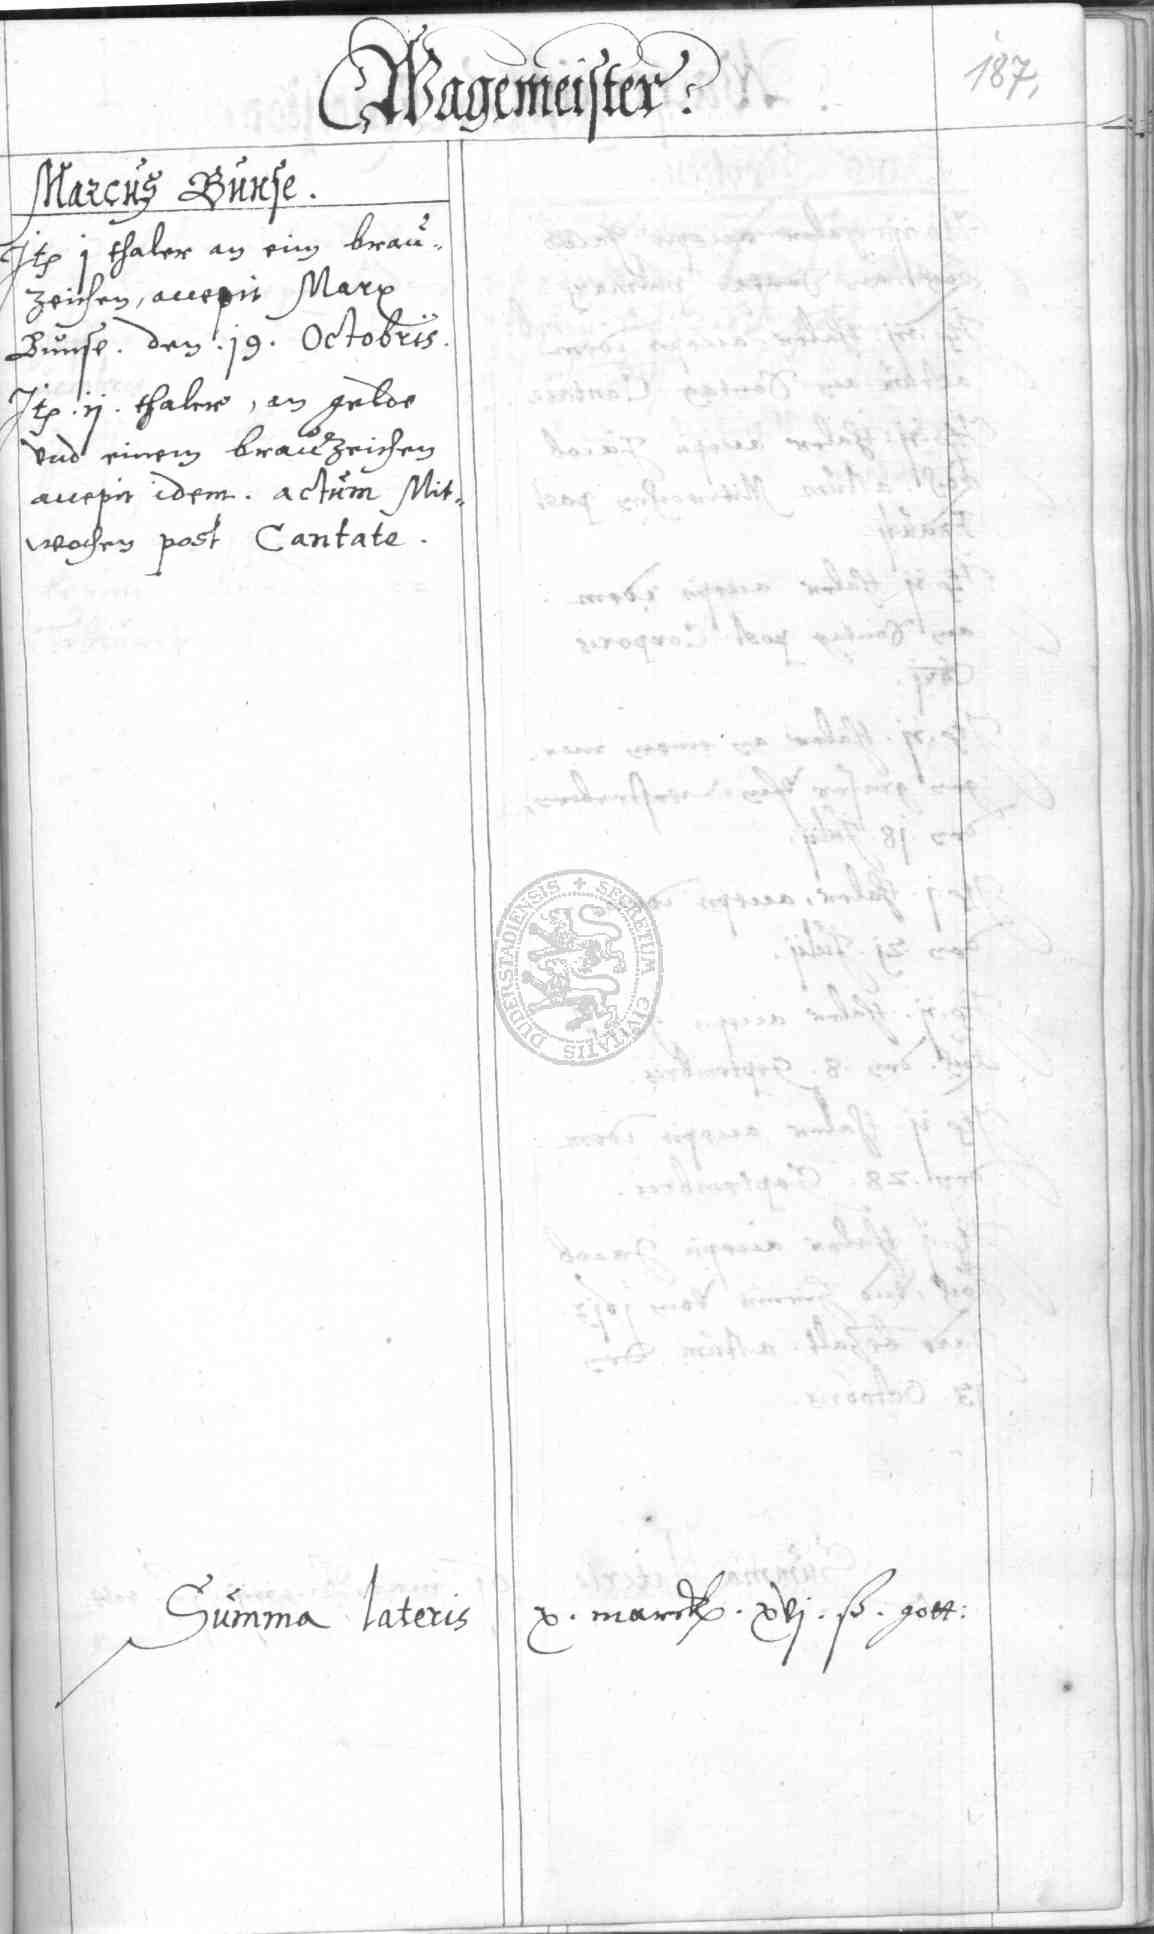 187,
Wagemeister.
Marcus Bunse.
Itē j thaler an eim brau-
zeichen, accepit Marx
Bunse. den .19. Octobris.
Itē .ij. thaler, an gelde
vnd einem brauzeichen
accepit idem. actum Mit-
wochen post Cantate.
SECRETUM CIVITATIS DUDERSTADIENSIS
Summa lateris x. marck. xvj. ß. gott: